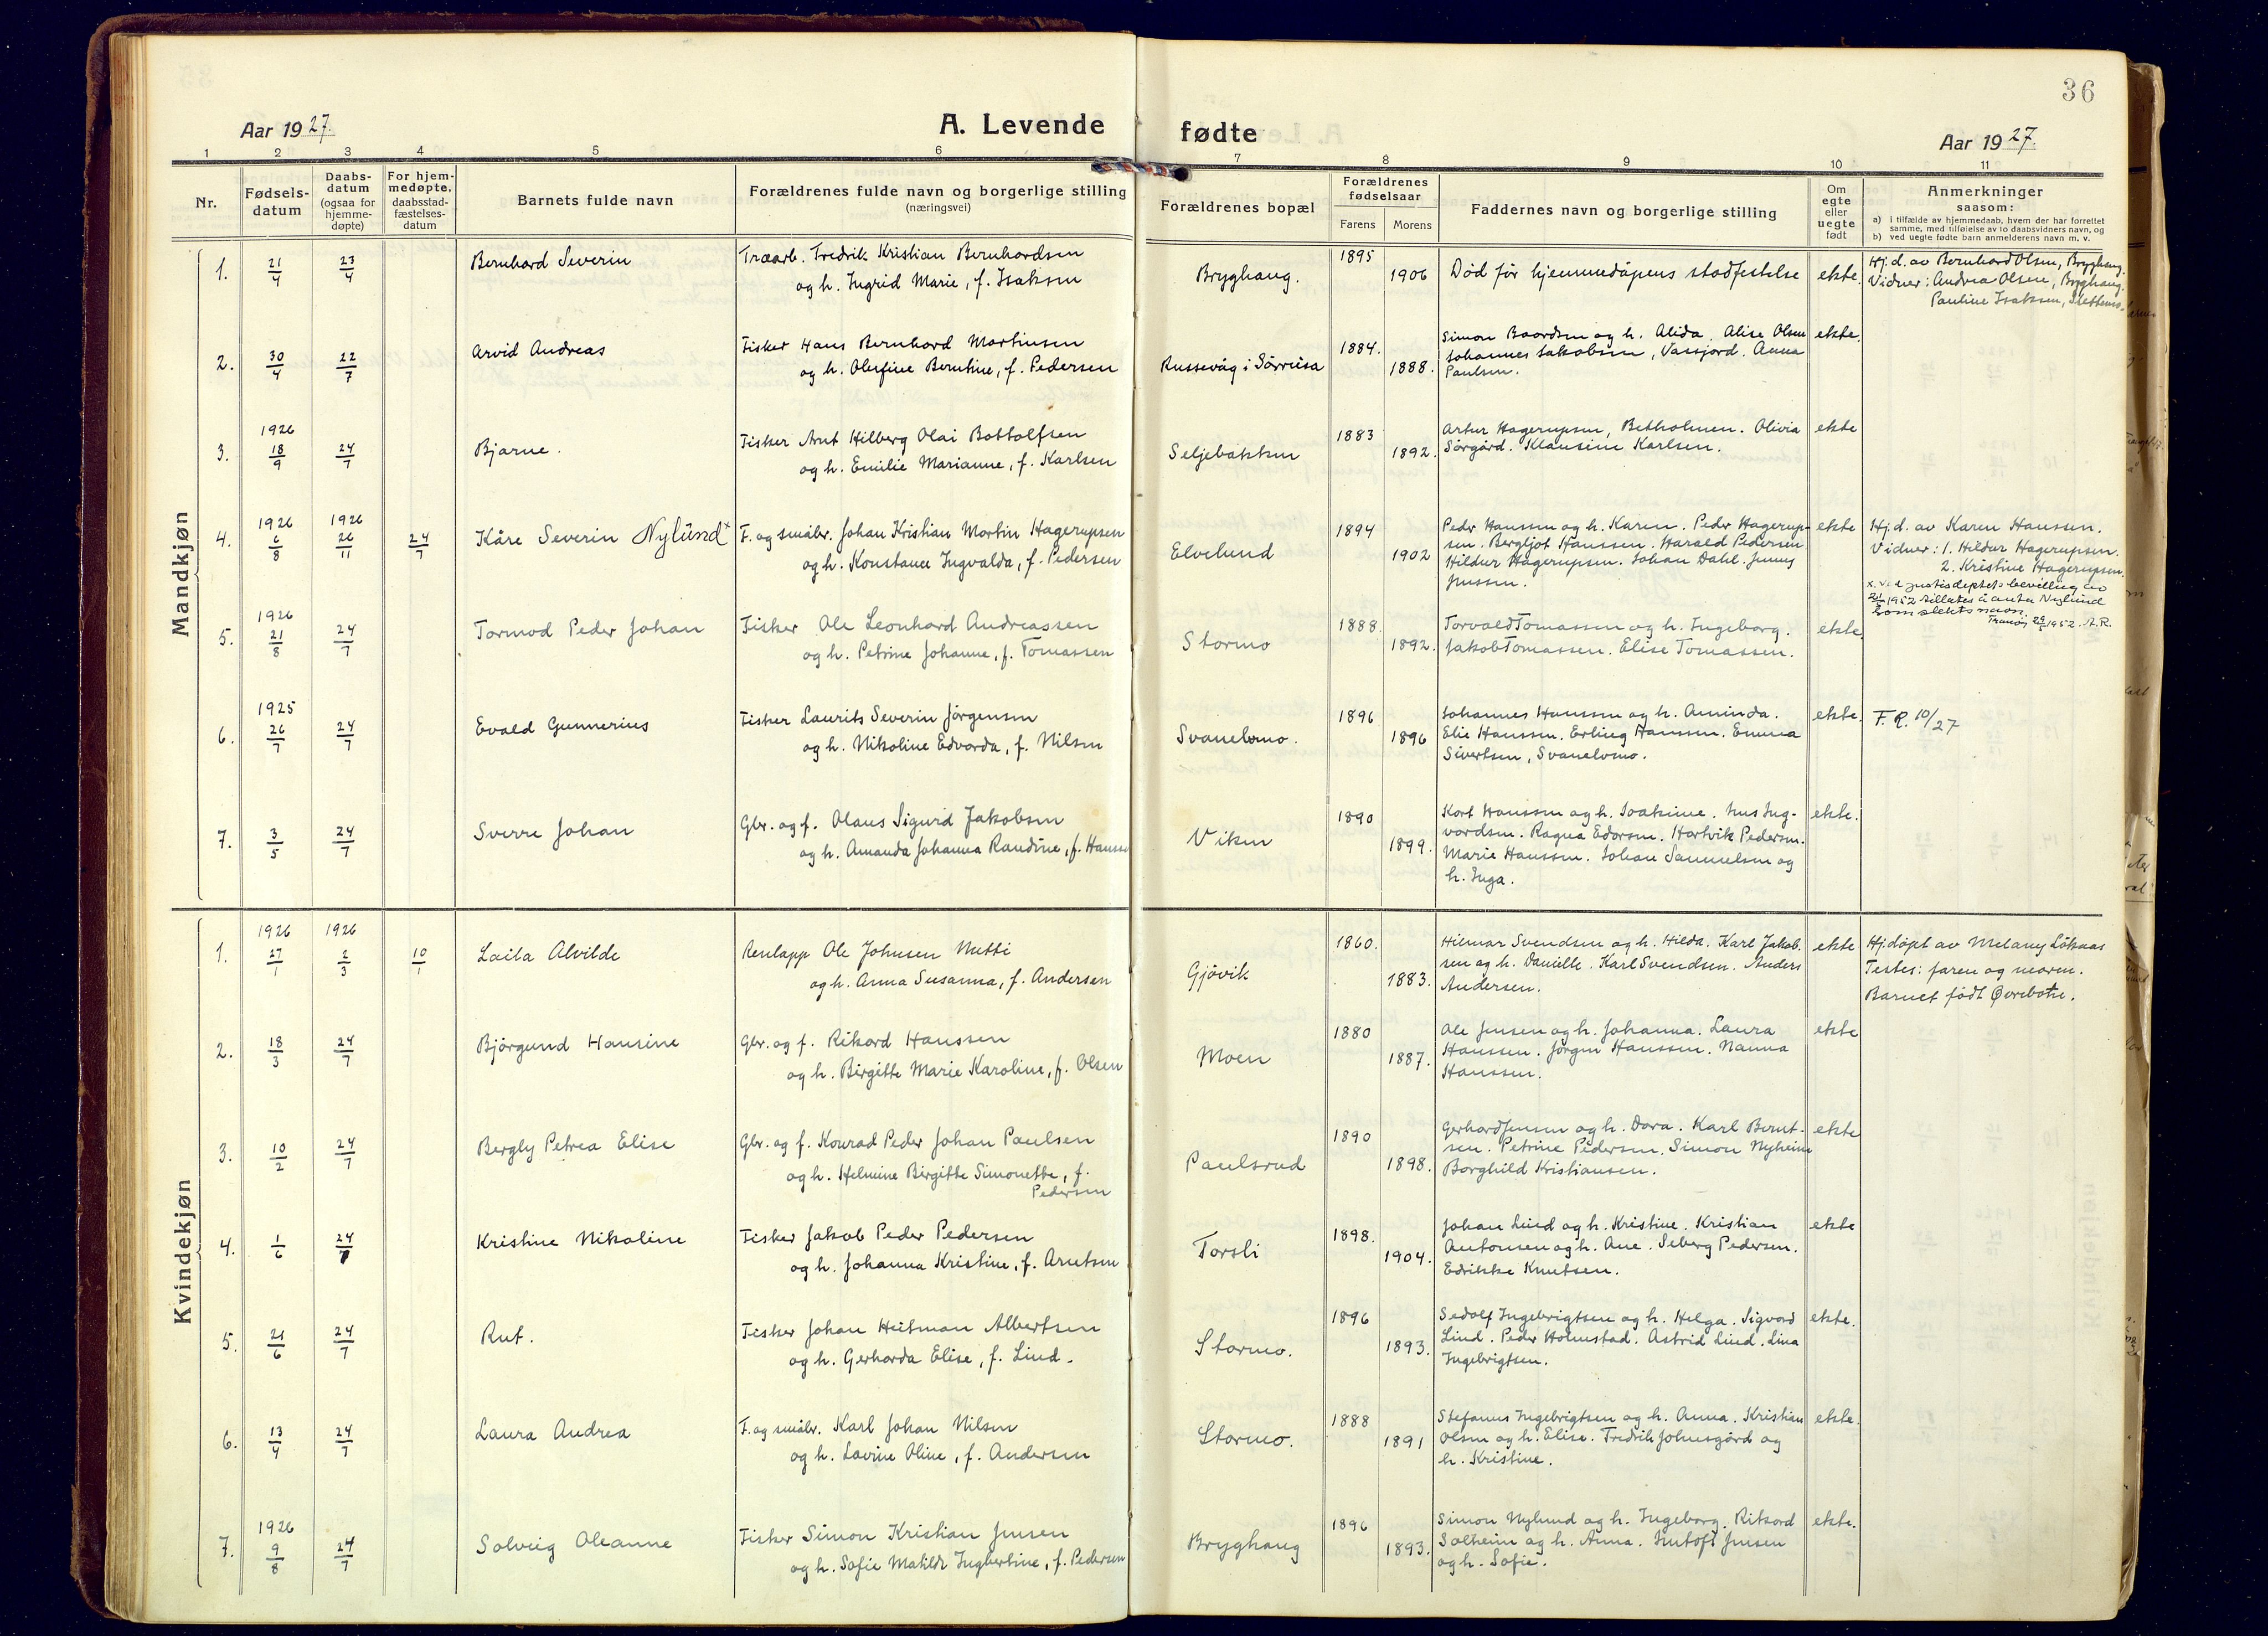 36
Aar 1927.
A. Levende fødte
Aar 1927.
1 2 3 4 5 6 7 8 9 10 11
Nr.
Fødsels-
datum
Daabs-
datum
(ogsaa for
hjemme-
døpte)
For hjem-
medøpte,
daabsstad-
fæstelses-
datum
Barnets fulde navn
Forældrenes fulde navn og borgerlige stilling
(næringsvei)
Forældrenes bopæl
Forældrenes
fødselsaar
Farens Morens
Faddernes navn og borgerlige stilling
Om
egte
eller
uegte
født
Anmerkninger
saasom:
a) i tilfælde av hjemmedaab, hvem der har forrettet
samme, med tilføielse av to daabsvidners navn, og
b) ved uegte fødte barn anmelderens navn m. v.
Mandkjøn
1. 21/4 23/4 Bernhard Severin
Træarb. Fredrik Kristian Bernhardsen
og h. Ingrid Marie, f. Isaksen
Bryghaug. 1895 1906
Død før hjemmedåpens stadfestelse
ekte.
Hj.d. av Bernhard Olsen, Bryghaug.
Vidner: Andrea Olsen, Bryghaug.
Pauline Isaksen,
2. 30/4 22/7 Arvid Andreas
Fisker Hans Bernhard Martinsen
og h. Olufine Berntine, f. Pedersen
Russevåg i Sörreisa 1884. 1888.
Simon Baardsen og h. Alida. Alise Olsen
Johannes Jakobsen, Vassjord. Anna
Paulsen.
ekte.
3. 1926 18/9 24/7 Bjarne.
Fisker Arnt Hilberg Olai Bottolfsen
og h. Emilie Marianne, f. Karlsen
Seljebakken 1883 1892.
Artur Hagerupsen, Betholmen. Olivia
Sörgård. Klausine Karlsen.
ekte
4. 1926 6/8 1926 26/11 24/7 Kåre Severin Nylund x
F. og småbr. Johan Kristian Martin Hagerupsen
og h. Konstance Ingvalda, f. Pedersen
Elvelund 1894 1902
Peder Hanssen og h. Karen. Peder Hagerup-
sen. Bergljot Hanssen. Harald Pedersen.
Hildur Hagerupsen. Johan Dahl. Jenny
Jenssen.
ekte
Hj.d. av Karen Hanssen.
Vidner: 1. Hildur Hagerupsen.
2. Kristine Hagerupsen.
x. Ved justisdeptets bevilling av
1952 tillates å anta Nylund
som slektsnavn.
Tranöy 1952. A.R.
5. 1926 21/8 24/7 Tormod Peder Johan
Fisker Ole Leonhard Andreassen
og h. Petrine Johanne, f. Tomassen
Stormo 1888. 1892.
Torvald Tomassen og h. Ingeborg.
Jakob Tomassen. Elise Tomassen.
ekte.
6. 1925 26/7 24/7 Evald Gunnerius
Fisker Laurits Severin Jörgensen
og h. Nikoline Edvarda, f. Nilsen
Svanelvmo. 1896 1896
Johannes Hanssen og h. Aminda.
Elie Hanssen. Erling Hanssen. Emma
Sivertsen, Svanelvmo.
ekte.
F.R. 10/27
7. 3/5 24/7 Sverre Johan
Gbr. og f. Olaus Sigurd Jakobsen
og h. Amanda Johanna Randine, f. Hanssen
Viken 1890 1899.
Kort Hanssen og h. Joakime. Jens Ing-
vardsen. Ragna Edorsen. Hartvik Pedersen.
Marie Hanssen. Johan Samuelsen og
h. Inga.
ekte.
Kvindekjøn
1. 1926 27/1 1926 2/3 10/1 Laila Alvilde
Renlapp Ole Johnsen Nutti
og h. Anna Susanna, f. Andersen
Gjövik 1860. 1883.
Hilmar Svendsen og h. Hilda. Karl Jakob-
sen og h. Danielle. Karl Svendsen. Anders
Andersen.
ekte
Hj.döpt av Melany Löknas
Testes: faren og moren.
Barnet født Øvrebotn.
2. 18/3 24/7 Björgund Hansine
Gbr. og f. Rikard Hanssen
og h. Birgitte Marie Karoline, f. Olsen
Moen 1880 1887.
Ole Jensen og h. Johanna. Laura
Hanssen. Jörgen Hanssen. Nanna
Hanssen.
ekte
3. 10/2 24/7 Bergly Petrea Elise
Gbr. og f. Konrad Peder Johan Paulsen
og h. Helmine Birgitte Simonette, f.
Pedersen
Paulsrud 1890 1898.
Gerhard Jensen og h. Dora. Karl Bernt-
sen. Petrine Pedersen. Simon Nyheim
Borghild Kristiansen.
ekte
4. 1/6 24/7 Kristine Nikoline
Fisker Jakob Peder Pedersen
og h. Johanna Kristine, f. Arntsen
Torsli 1898. 1904.
Johan Lind og h. Kristine. Kristian
Antonsen og h. Ane. Seberg Pedersen.
Edrikke Knutsen.
ekte
5. 21/6 24/7 Rut.
Fisker Johan Heitman Albertsen
og h. Gerharda Elise, f. Lind.
Stormo. 1896 1893.
Sedolf Ingebrigtsen og h. Helga. Sigvard
Lind. Peder Holmstad. Astrid Lind. Lina
Ingebrigtsen.
ekte.
6. 13/4 24/7 Laura Andrea
F. og småbr. Karl Johan Nilsen
og h. Lovine Oline, f. Andersen
Stormo. 1888 1891
Stefanus Ingebrigtsen og h. Anna. Kristian
Olsen og h. Elise. Fredrik Johnsgård og
h. Kristine.
ekte.
7. 1926 9/8 24/7 Solveig Oleanne
Fisker Simon Kristian Jensen
og h. Sofie Matilde Ingbertine, f. Pedersen
Bryghaug 1896 1893.
Simon Nylund og h. Ingeborg. Rikard
Solheim og h. Anna. Jentoft Jensen
og h. Sofie.
ekte.